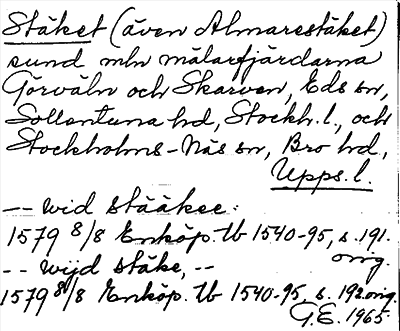 Stäket (även Almarestäket)
sund mln mälarfjärdarna
Görväln och Skarven, Eds sn,
Sollentuna hd, Stockh. l., och
Stockholms-Näs sn, Bro hd,
Upps. l.
-- wid stääkee:
1579 8/8 Enköp. tb 1540-95, s. 191.
orig.
-- wijd stäke, --
1579 8/8 Enköp. tb 1540-95, s. 192 orig.
G.E. 1965.